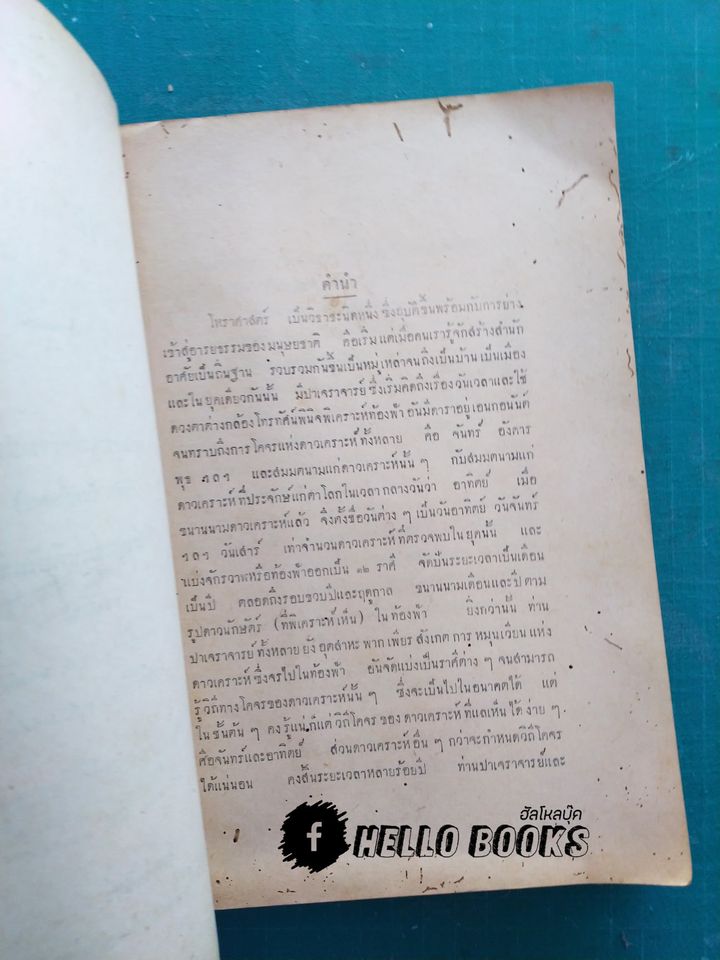 คำนำ
โหราศาสตร์ เป็นวิชาชะนิดหนึ่ง ซึ่งอุบัติขึ้นพร้อมกับการย่าง
เข้าสู่อารยธรรมของมนุษยชาติ คือเริ่มแต่เมื่อคนเรารู้จักสร้างสำนัก
อาศัยเป็นถิ่นฐาน รวบรวมกันขึ้นเป็นหมู่เหล่าจนถึงเป็นบ้านเป็นเมือง
และในยุคเดียวกันนั้น มีปาเจราจารย์ซึ่งเริ่มคิดถึงเรื่องวันเวลาและใช้
ดวงตาต่างกล้องโทรทัศน์พินิจพิเคราะห์ท้องฟ้า อันมีดาราอยู่เอนกอนันต์
จนทราบถึงการโคจรแห่งดาวเคราะห์ทั้งหลาย คือ จันทร์ อังคาร
พุธ ฯลฯ และสมมตนามแก่ดาวเคราะห์นั้น ๆ กับสมมตนามแก่
ดาวเคราะห์ที่ประจักษ์แก่ตาโลกในเวลากลางวันว่า อาทิตย์ เมื่อ
ขนานนามดาวเคราะห์แล้ว จึงตั้งชื่อวันต่าง ๆ เป็นวันอาทิตย์ วันจันทร์
ฯลฯ วันเสาร์ เท่าจำนวนดาวเคราะห์ที่ตรวจพบในยุคนั้น และ
แบ่งจักรวาฬหรือท้องฟ้าออกเป็น ๑๒ ราศี จัดปันระยะเวลาเป็นเดือน
เป็นปี ตลอดถึงรอบขวบปีและฤดูกาล ขนานนามเดือนและปีตาม
รูปดาวนักษัตร์ (ที่พิเคราะห์เห็น) ในท้องฟ้า ยิ่งกว่านั้น ท่าน
ปาเจราจารย์ทั้งหลาย ยังอุตสาหะพากเพียรสังเกตการหมุนเวียนแห่ง
ดาวเคราะห์ซึ่งจรไปในท้องฟ้า อันจัดแบ่งเป็นราศีต่าง ๆ จนสามารถ
รู้วิถีทางโคจรของดาวเคราะห์นั้น ๆ ซึ่งจะเป็นไปในอนาคตได้ แต่
ในชั้นต้น ๆ คงรู้แน่ก็แต่วิถีโคจรของดาวเคราะห์ที่แลเห็นได้ง่าย ๆ
คือจันทร์และอาทิตย์ ส่วนดาวเคราะห์อื่น ๆ กว่าจะกำหนดวิถีโคจร
ได้แน่นอน คงสิ้นระยะเวลาหลายร้อยปี ท่านปาเจราจารย์และ
ฮัลโหลบุ๊ค
f HELLO BOOKS